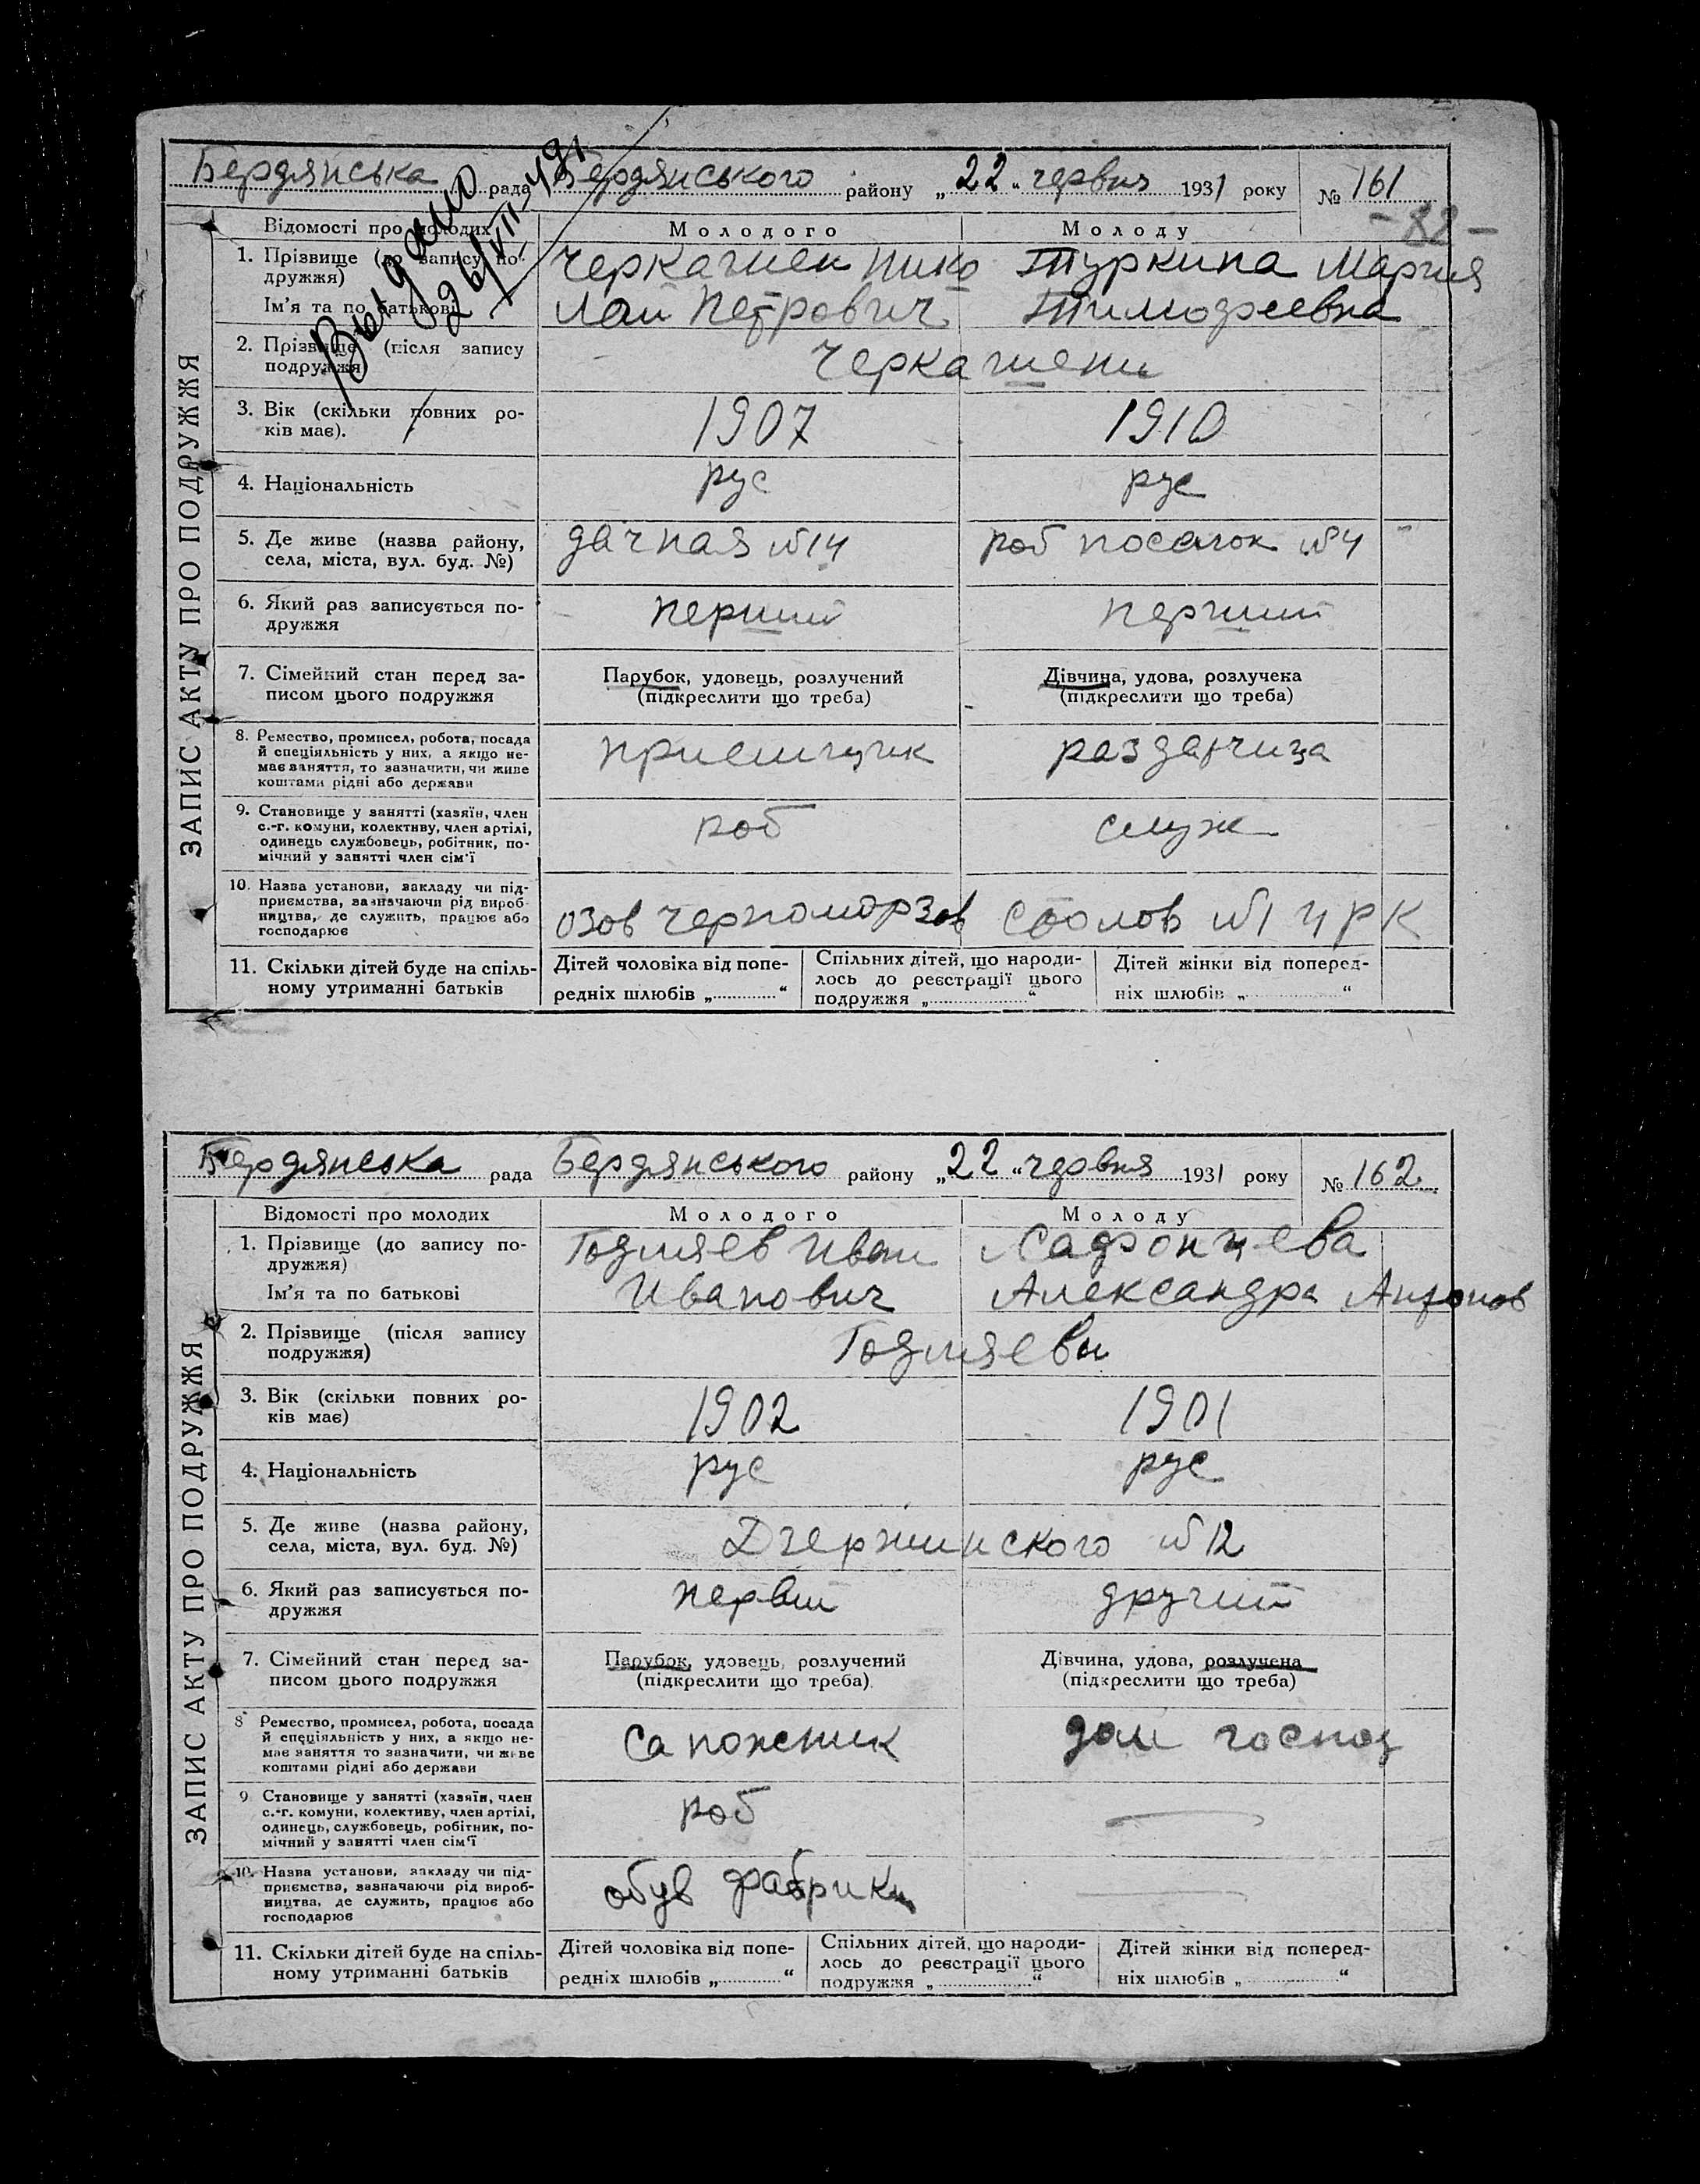 Выдано
26/VII-49г
Бердянська рада Бердянського району „22“ червня 1931 року № 161
- 82 -
ЗАПИС АКТУ ПРО ПОДРУЖЖЯ
Відомості про молодих Молодого Молоду
1. Прізвище (до запису подружжя)
Ім'я та по батькові
Черкашен Нико Туркина Мария
лай Петрович Тимофеевна
2. Прізвище (після запису
подружжя)
Черкашени
3. Вік (скільки повних ро-
ків має).
1907 1910
4. Національність рус рус
5. Де живе (назва району,
села, міста, вул. буд. №)
дачная №14 роб посалок №4
6. Який раз записується по-
дружжя
перший перший
7. Сімейний стан перед за-
писом цього подружжя
Парубок, удовець, розлучений
(підкреслити що треба)
Дівчина, удова, розлучена
(підкреслити що треба)
8. Ремество, промисел, робота, посада
й спеціяльність у них, а якщо не-
має заняття, то зазначити, чи живе
коштами рідні або держави
приемщик раздатчица
9. Становище у занятті (хазяїн, член
с.-г. комуни, колективу, член артілі,
одинець службовець, робітник, по-
мічний у занятті член сім'ї
роб служ
10. Назва установи, закладу чи під-
приємства, зазначаючи рід вироб-
ництва, де служить, працює або
господарює
озов Черноморзов столов №1 ЦРК
11. Скільки дітей буде на спіль-
ному утриманні батьків
Дітей чоловіка від попе-
редніх шлюбів „ “
Спільних дітей, що народи-
лось до реєстрації цього
подружжя „ “
Дітей жінки від поперед-
ніх шлюбів „ “
Бердянська рада Бердянського району „22“ червня 1931 року № 162
ЗАПИС АКТУ ПРО ПОДРУЖЖЯ
Відомості про молодих Молодого Молоду
1. Прізвище (до запису по-
дружжя)
Ім'я та по батькові
Годуляев Иван
Иванович Александра Антонов
2. Прізвище (після запису
подружжя)
3. Вік (скільки повних ро-
ків має)
1902 1901
4. Національність рус рус
5. Де живе (назва району,
села, міста, вул. буд. №)
Дзержинского №12
6. Який раз записується по-
дружжя
первий другий
7. Сімейний стан перед за-
писом цього подружжя
Парубок, удовець, розлучений
(підкреслити що треба)
Дівчина, удова, розлучена
(підкреслити що треба)
8 Ремество, промисел, робота, посада
й спеціяльність у них, а якщо не-
має заняття то зазначити, чи живе
коштами рідні або держави
Сапожник дом господ
9 Становище у занятті (хазяїн, член
с.-г. комуни, колективу, член артілі,
одинець, службовець, робітник, по-
мічний у занятті член сім'ї
роб
10. Назва установи, закладу чи під-
приємства, зазначаючи рід вироб-
ництва, де служить, працює або
господарює
обув фабрики
11. Скільки дітей буде на спіль-
ному утриманні батьків
Дітей чоловіка від попе-
редніх шлюбів „ “
Спільних дітей, що народи-
лось до реєстрації цього
подружжя „ “
Дітей жінки від поперед-
ніх шлюбів „ “